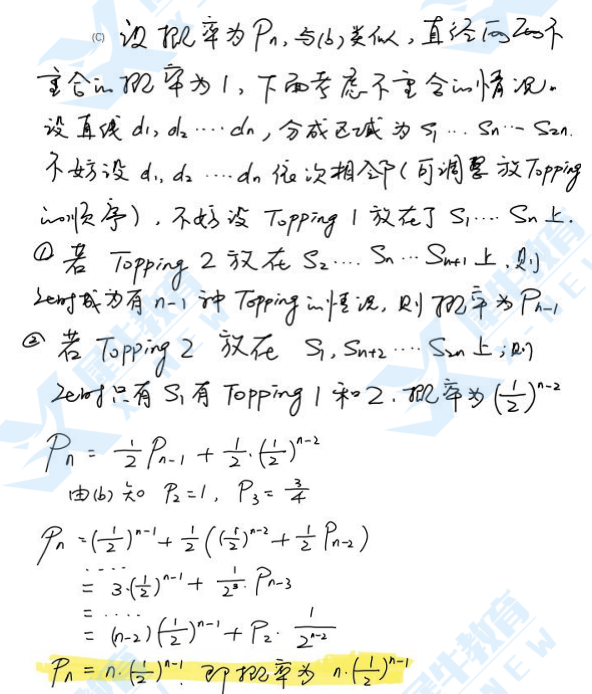 (C) 设概率为Pₙ, 与(b)类似, 直径间Zoo不
重合的概率为1, 下面考虑不重合的情况.
设直线 d₁, d₂ ⋯⋯ dₙ, 分成区域为 S₁ ⋯ Sₙ ⋯ S₂ₙ.
不妨设 d₁, d₂ ⋯⋯ dₙ 依次相邻(可调整放Topping
的顺序), 不妨设 Topping 1 放在了 S₁ ⋯⋯ Sₙ 上.
① 若 Topping 2 放在 S₂ ⋯⋯ Sₙ ⋯ Sₙ₊₁ 上, 则
此时成为有 n-1 种 Topping 的情况, 则概率为 Pₙ₋₁
② 若 Topping 2 放在 S₁, Sₙ₊₂ ⋯⋯ S₂ₙ 上, 则
此时只有 S₁ 有 Topping 1 和 2. 概率为 (1/2)ⁿ⁻²
Pₙ = 1/2 Pₙ₋₁ + 1/2 · (1/2)ⁿ⁻²
由(b)知 P₂=1, P₃= 3/4
Pₙ = (1/2)ⁿ⁻¹ + 1/2 ((1/2)ⁿ⁻² + 1/2 Pₙ₋₂)
⋯⋯
= 3·(1/2)ⁿ⁻¹ + 1/2³ · Pₙ₋₃
= ⋯⋯
= (n-2)(1/2)ⁿ⁻¹ + P₂ · 1/2ⁿ⁻²
Pₙ = n·(1/2)ⁿ⁻¹. 即概率为 n·(1/2)ⁿ⁻¹
犀牛教育
X-NEW